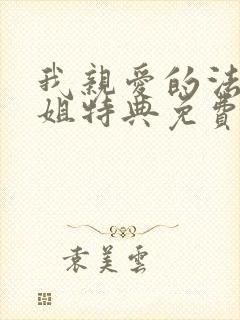 我親愛的法
姐特典免費
袁美雲